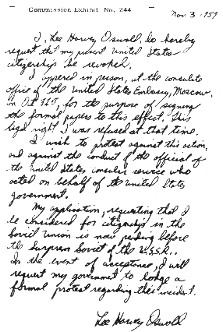 Commission Exhibit No. 244
Nov 3 1959
I, Lee Harvey Oswald, do hereby
request that my present United States
citizenship be revoked.
I appered in person, at the consulate
office of the United States Embassy, Moscow,
on Oct 31st, for the purpose of signing
the formal papers to this effect. This
legal right I was refused at that time.
I wish to protest against this action,
and against the conduct of the official of
the United States consular service who
acted on behalf of the United States
government.
My application, requesting that I
be considered for citizenship in the
Soviet Union is now pending before
the Surprem Soviet of the U.S.S.R..
In the event of acceptance, I will
request my government to lodge a
formal protest regarding this incident.
Lee Harvey Oswald